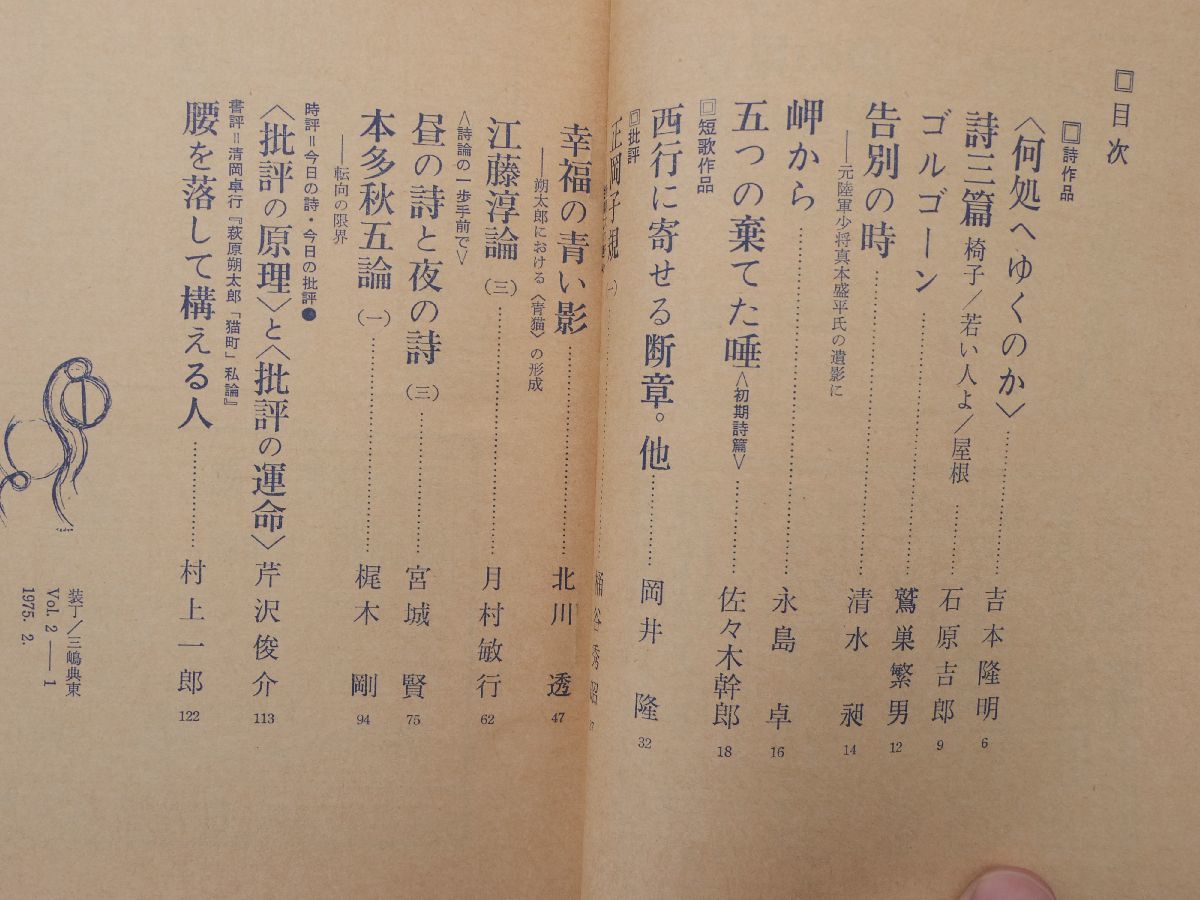 目次
詩作品
〈何処へゆくのか〉……吉本隆明 6
詩三篇 椅子／若い人よ／屋根……石原吉郎 9
ゴルゴーン……鷲巣繁男 12
告別の時……清水昶 14
──元陸軍少将真本盛平氏の遺影に
岬から……永島卓 16
五つの棄てた唾〈初期詩篇〉……佐々木幹郎 18
短歌作品
西行に寄せる断章。他……岡井隆 32
批評
正岡子規(一)……桶谷秀昭
幸福の青い影……北川透 47
──朔太郎における〈青猫〉の形成
江藤淳論(三)……月村敏行 62
〈詩論の一歩手前で〉
昼の詩と夜の詩(三)……宮城賢 75
本多秋五論(一)……梶木剛 94
──転向の限界
時評＝今日の詩・今日の批評
〈批評の原理〉と〈批評の運命〉芹沢俊介 113
書評＝清岡卓行『萩原朔太郎「猫町」私論』
腰を落して構える人……村上一郎 122
装丁／三嶋典東
Vol. 2──1
1975. 2.